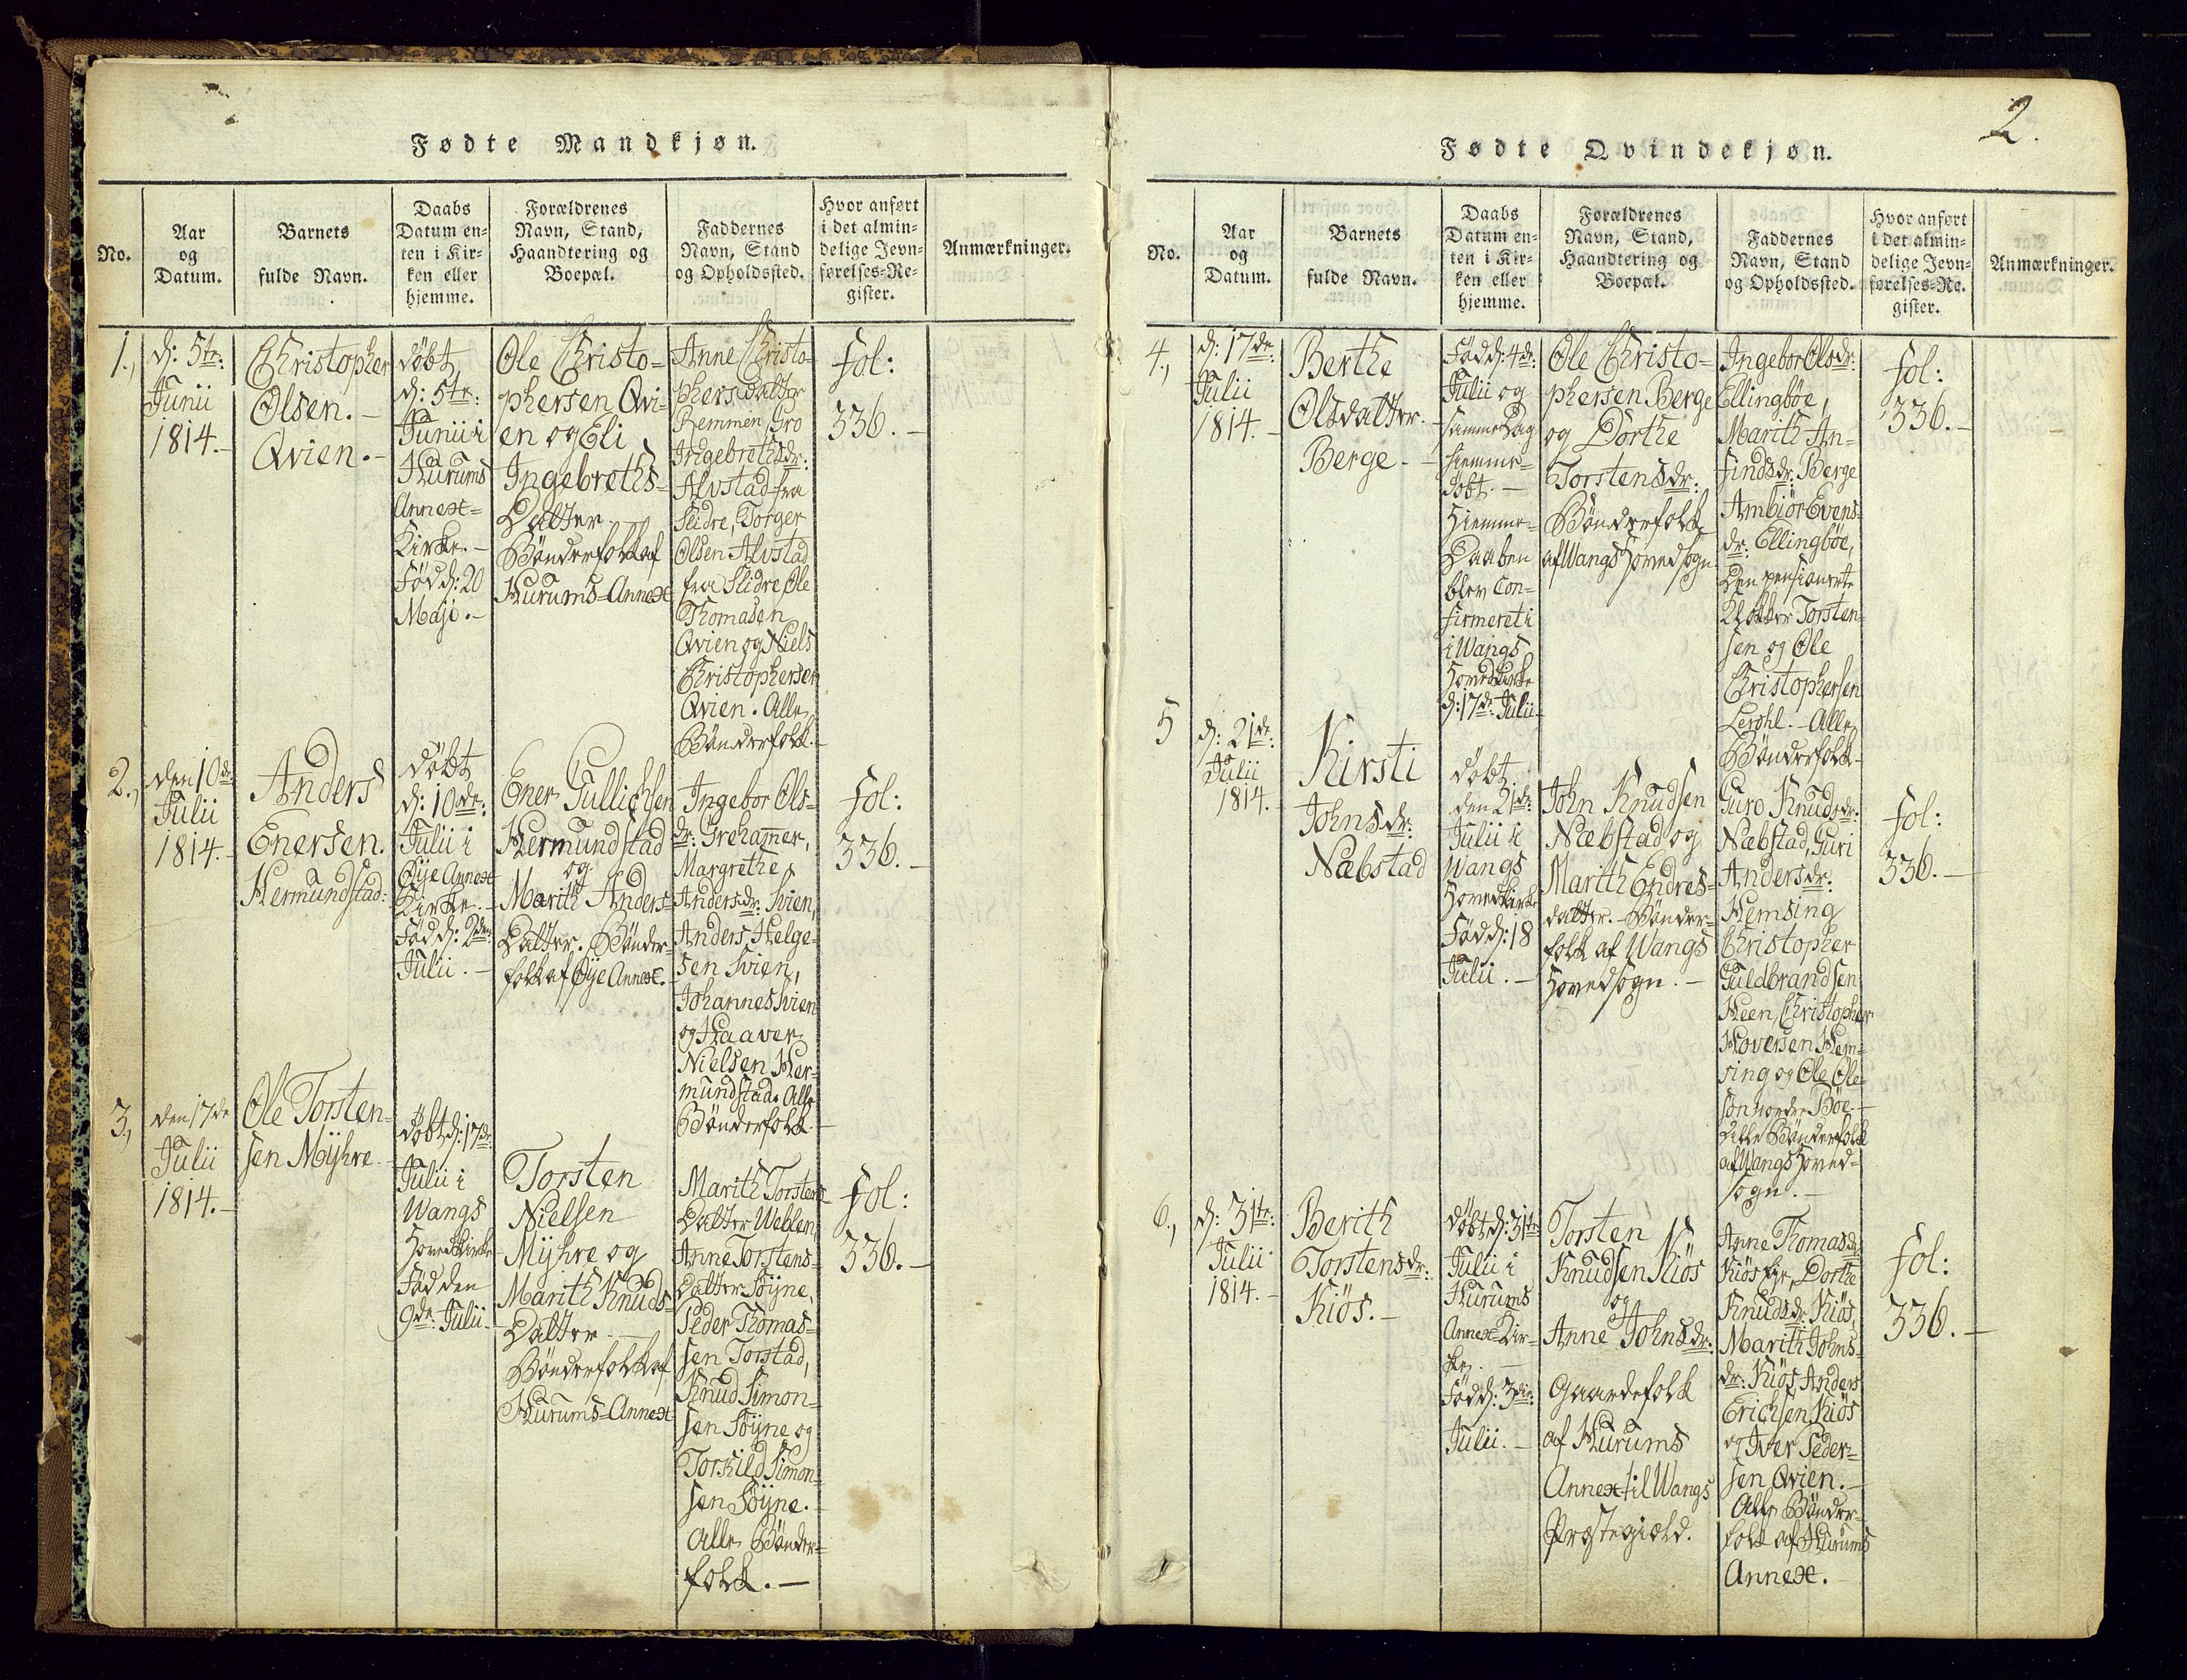 Fødte Mandkjøn.
No.
Aar
og
Datum.
Barnets
fulde Navn.
Daabs
Datum en-
ten i Kir-
ken eller
hjemme.
Forældrenes
Navn, Stand,
Haandtering og
Boepæl.
Faddernes
Navn, Stand
og Opholdssted.
Hvor anført
i det almin-
delige Jevn-
førelses-Re-
gister.
Anmærkninger.
1.,
d: 5te:
Junii
1814.-
Christopher
Olsen.-
Qvien.-
døbt
d: 5te:
Junii i
Hurums
Annex=
Kirke.-
Född: 20
Maji.-
Ole Christo=
phersen Qvi-
en og Eli
Ingebreths=
Datter
Bönderfolk af
Hurums=Annex
Anne Christo=
phersdatter
Remmen, Gro
Ingebrethsdr:
Alvstad fra
Slidre, Torger
Olsen Alvstad
fra Slidre Ole
Thomasen
Qvien og Niels
Christophersen
Qvien. Alle
Bönderfolk.-
fol:
336.-
2.,
den 10de
Julii
1814.-
Anders
Enersen.
Hermundstad.
döbt
d: 10de:
Julii i
Öye Annex
Kirke.-
Född: 2den
Julii.-
Ener Gullichsen
Hermundstad
og
Marith Anders=
Datter. Bönder=
folk af Öye Annex.
Ingebor Ols=
dr: Grehamer,
Margrethe
Andersdr: Svien,
Anders Helge=
sen Svien,
Johannes Svien
og Haaver
Nielsen Her=
mundstad. Alle
Bönderfolk
fol:
336.-
3.,
den 17de
Julii
1814.-
Ole Torsten-
sen Möyhre.
döbt d: 17de
Julii i
Wangs
Hovedkirke
Föd den
9de: Julii.-
Torsten
Nielsen
Myhre og
Marith Knuds=
Datter
Bönderfolk af
Hurums=Annex
Marith Torstens=
Datter Weblen,
Anne Torstens=
Datter Söyne,
Peder Thomas=
sen Torstad,
Knud Simon=
sen Söyne og
Torkild Simon=
sen Söyne.
Alle Bönder=
folk.-
fol:
336.-
2.
Fødte Qvindekjøn.
No.
Aar
og
Datum.
Barnets
fulde Navn.
Daabs
Datum en-
ten i Kir-
ken eller
hjemme.
Forældrenes
Navn, Stand,
Haandtering og
Boepæl.
Faddernes
Navn, Stand
og Opholdssted.
Hvor anført
i det almin-
delige Jevn-
førelses-Re-
gister.
Anmærkninger.
4.,
d: 17de
Julii
1814.-
Berthe
Olsdatter.
Berge.-
Född: 4de:
Julii og
samme Dag
hiemme=
döbt.-
Hiemme=
Daaben
blev con=
firmeret i
i Wangs
Hovedkirke
d: 17de: Julii
Ole Christo=
phersen Berge
og Dorthe
Torstensdr:
Bönderfolk
af Wangs Hovedsogn
Ingebor Olsdr:
Ellingböe,
Marith An=
findsdr: Berge
Ambiör Evens=
dr: Ellingböe,
Den pensionerte
Klokker Torsten=
sen og Ole
Christophersen
Lerohl.- Alle
Bönderfolk
fol:
336.-
5
d: 21de:
Julii
1814.
Kirsti
Johnsdr:
Næbstad
döbt
den 21de
Julii i
Wangs
Hovedkirke
Född: 18
Julii.-
John Knudsen
Næbstad og
Marith Endres=
datter.- Bönder=
folk af Wangs
Hovedsogn.-
Guro Knudsdr:
Næbstad, Guri
Andersdr:
Hemsing
Christopher
Guldbrandsen
Heen, Christopher
Hoversen Hem=
sing og Ole Ole=
sön nordre Böe.-
Alle Bönderfolk
af Wangs Hoved=
sogn.-
fol:
336.-
6.,
d: 31te:
Julii
1814.-
Berith
Torstensdr:
Kiös.-
döbt d: 31te
Julii i
Hurums
Annex Kir=
ke.-
Född: 3die:
Julii.-
Torsten
Knudsen Kiös
og
Anne Johnsdr:
Gaardefolk
af Hurums
Annex til Wangs
Præstegiæld.
Anne Thomasdr
Kiös, Dorthe
Knudsdr: Kiös,
Marith Johns=
dr: Kiös Anders
Erichsen Kiös
og Iver Peder=
sen Qvien.-
Alle Bönder=
folk af Hurums
Annex.
fol:
336.-